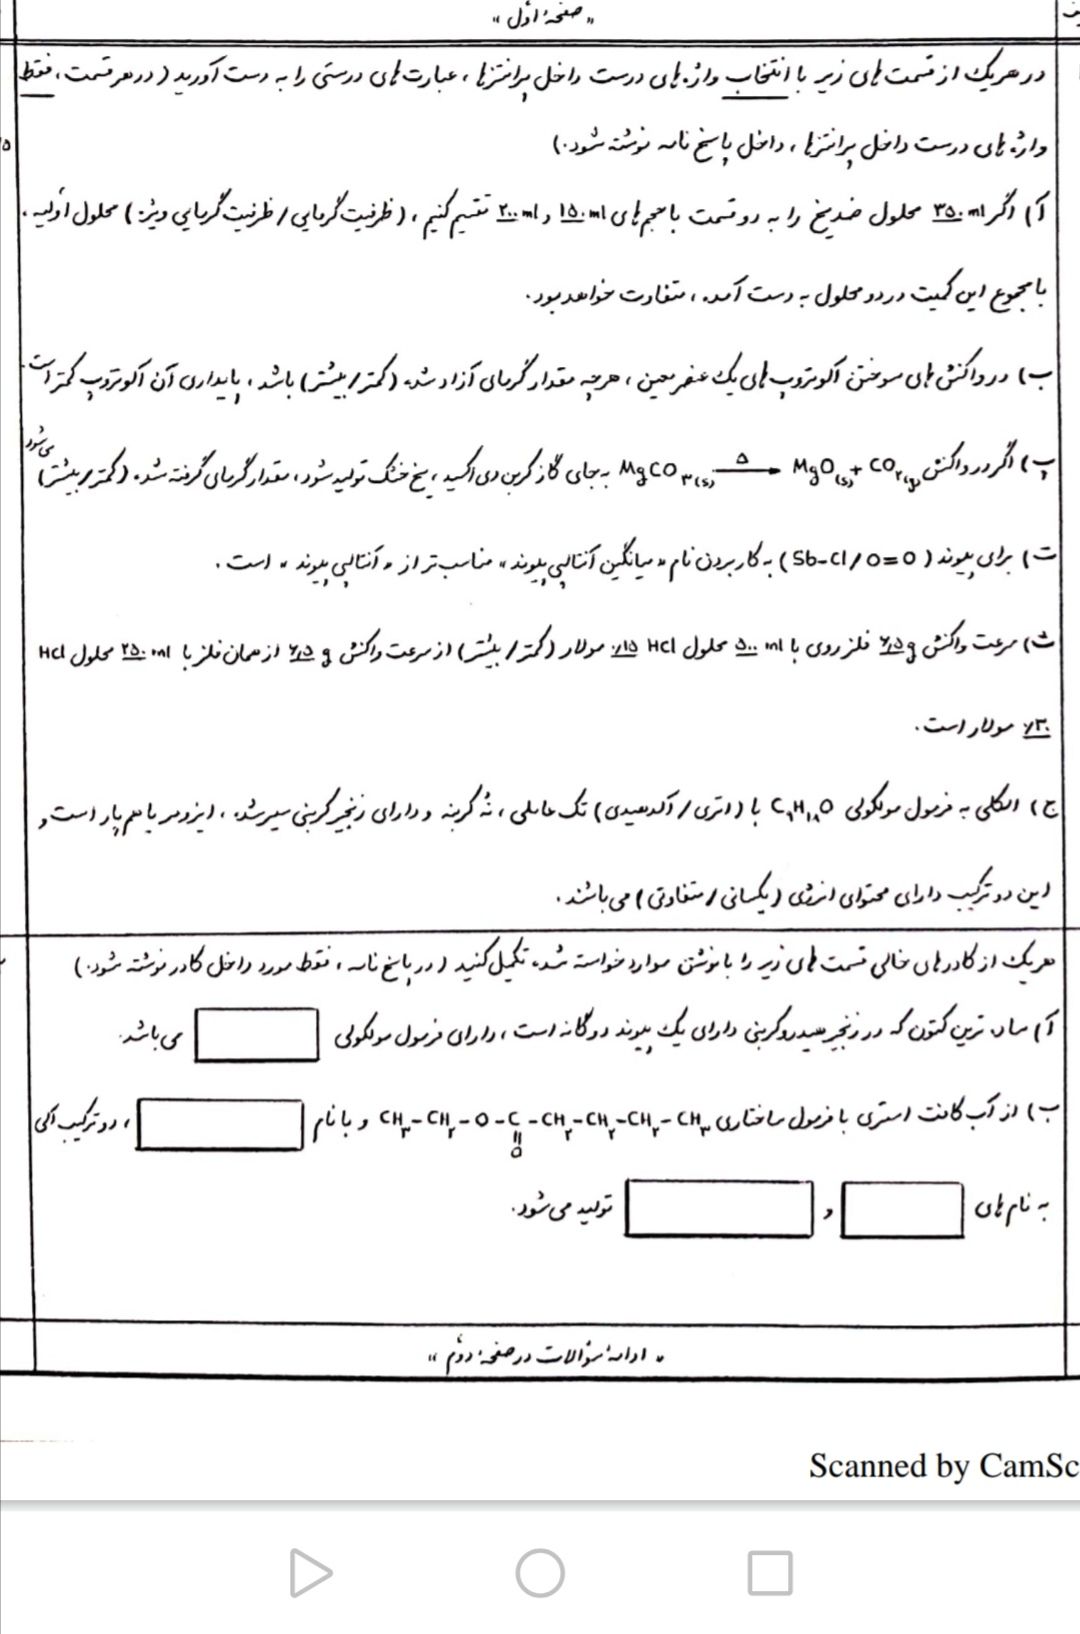 « صفحهٔ اوّل »
در هر یک از قسمت های زیر با انتخاب واژه های درست داخل پرانتزها ، عبارت های درستی را به دست آورید ( در هر قسمت ، فقط
واژه های درست داخل پرانتزها ، داخل پاسخ نامه نوشته شود . )
آ ) اگر ۳۵۰ ml محلول ضدیخ را به دو قسمت با حجم های ۱۵۰ ml و ۲۰۰ ml تقسیم کنیم ، ( ظرفیت گرمایی / ظرفیت گرمایی ویژه ) محلول اولیه ،
با مجموع این کمیت در دو محلول به دست آمده ، متفاوت خواهد بود .
ب ) در واکنش های سوختن آلوتروپ های یک عنصر معین ، هرچه مقدار گرمای آزاد شده ( کمتر / بیشتر ) باشد ، پایداری آن آلوتروپ کمتر است .
پ ) اگر در واکنش MgCO۳(s) —Δ→ MgO(s) + CO۲(g) به جای گاز کربن دی اکسید ، یخ خشک تولید شود ، مقدار گرمای گرفته شده ( کمتر / بیشتر ) می شود
ت ) برای پیوند ( Sb-Cl / O=O ) به کار بردن نام « میانگین آنتالپی پیوند » مناسب تر از « آنتالپی پیوند » است .
ث ) سرعت واکنش ۶٫۵ g فلز روی با ۵۰۰ ml محلول HCl ۰٫۱۵ مولار ( کمتر / بیشتر ) از سرعت واکنش ۶٫۵ g از همان فلز با ۲۵۰ ml محلول HCl
۰٫۳۰ مولار است .
ج ) الکلی به فرمول مولکولی C۹H۱۸O با ( اتری / آلدهیدی ) تک عاملی ، نُه کربنه و دارای زنجیر کربنی سیر شده ، ایزومر یا هم پار است و
این دو ترکیب دارای محتوای انرژی ( یکسانی / متفاوتی ) می باشند .
هر یک از کادرهای خالی قسمت های زیر را با نوشتن موارد خواسته شده تکمیل کنید ( در پاسخ نامه ، فقط مورد داخل کادر نوشته شود . )
آ ) ساده ترین کتون که در زنجیر هیدروکربنی دارای یک پیوند دوگانه است ، دارای فرمول مولکولی می باشد .
ب ) از آب کافت استری با فرمول ساختاری CH۳-CH۲-O-C(=O)-CH۲-CH۲-CH۲-CH۳ و با نام ، دو ترکیب آلی
به نام های و تولید می شود .
« ادامهٔ سؤالات در صفحهٔ دوّم »
Scanned by CamSc